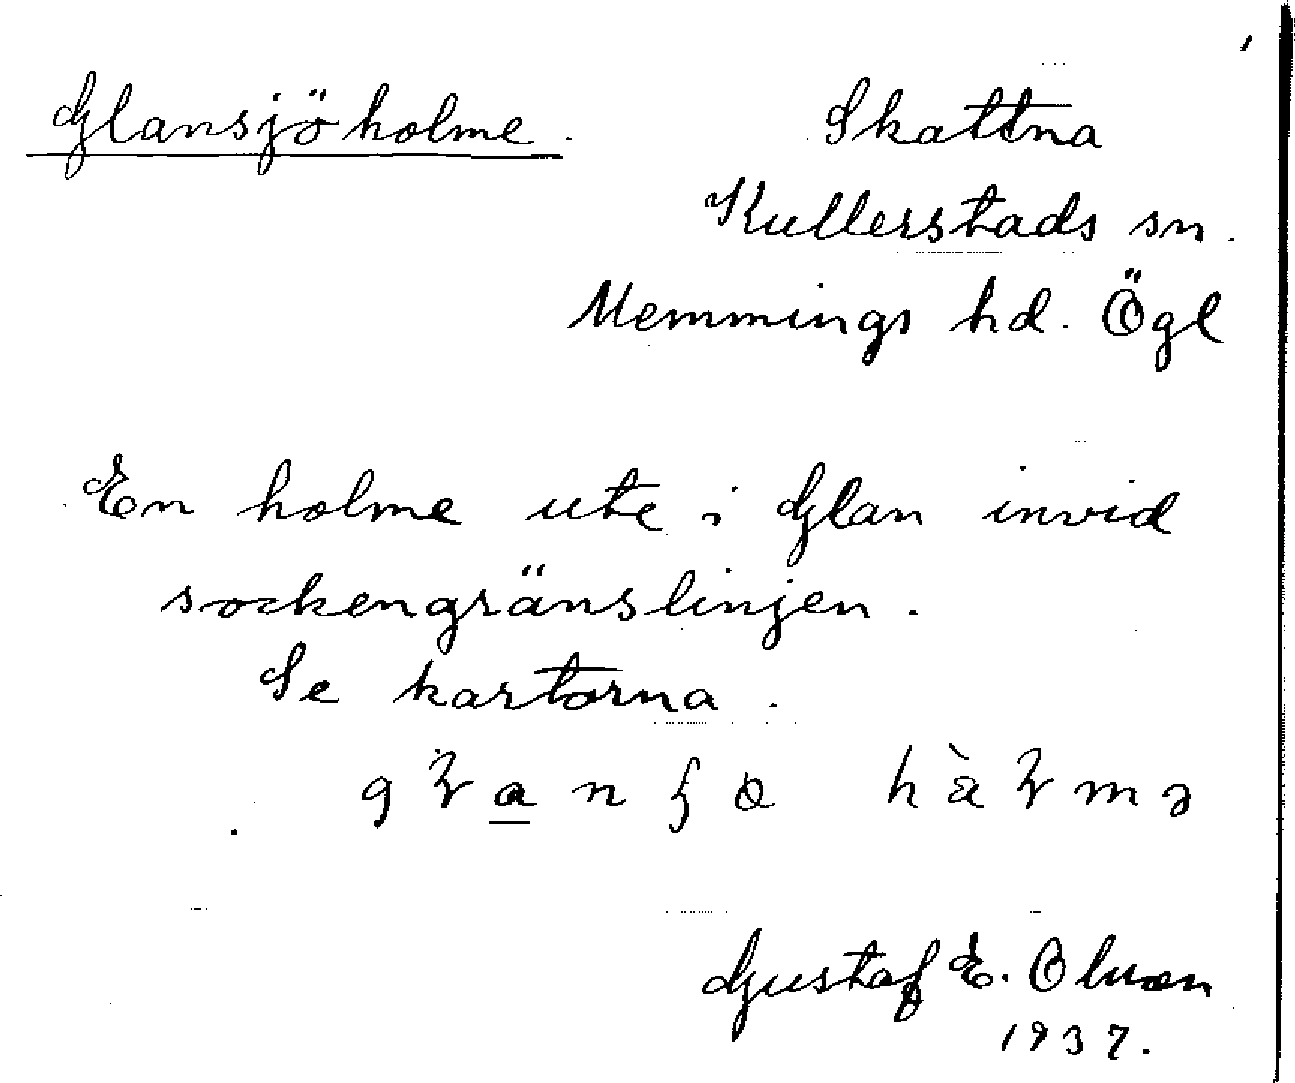 Glansjöholme.
Skattna
Kullerstads sn.
Memmings hd. Ögl
En holme ute i Glan invid
sockengränslinjen.
Se kartorna.
Gustaf E. Olson
1937.